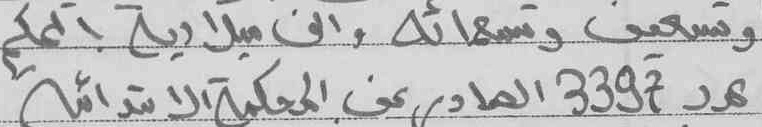 وتسعين وتسعمائه والف ميلادية الحكم
عدد 3397 الصادر عن المحكمة الابتدائية